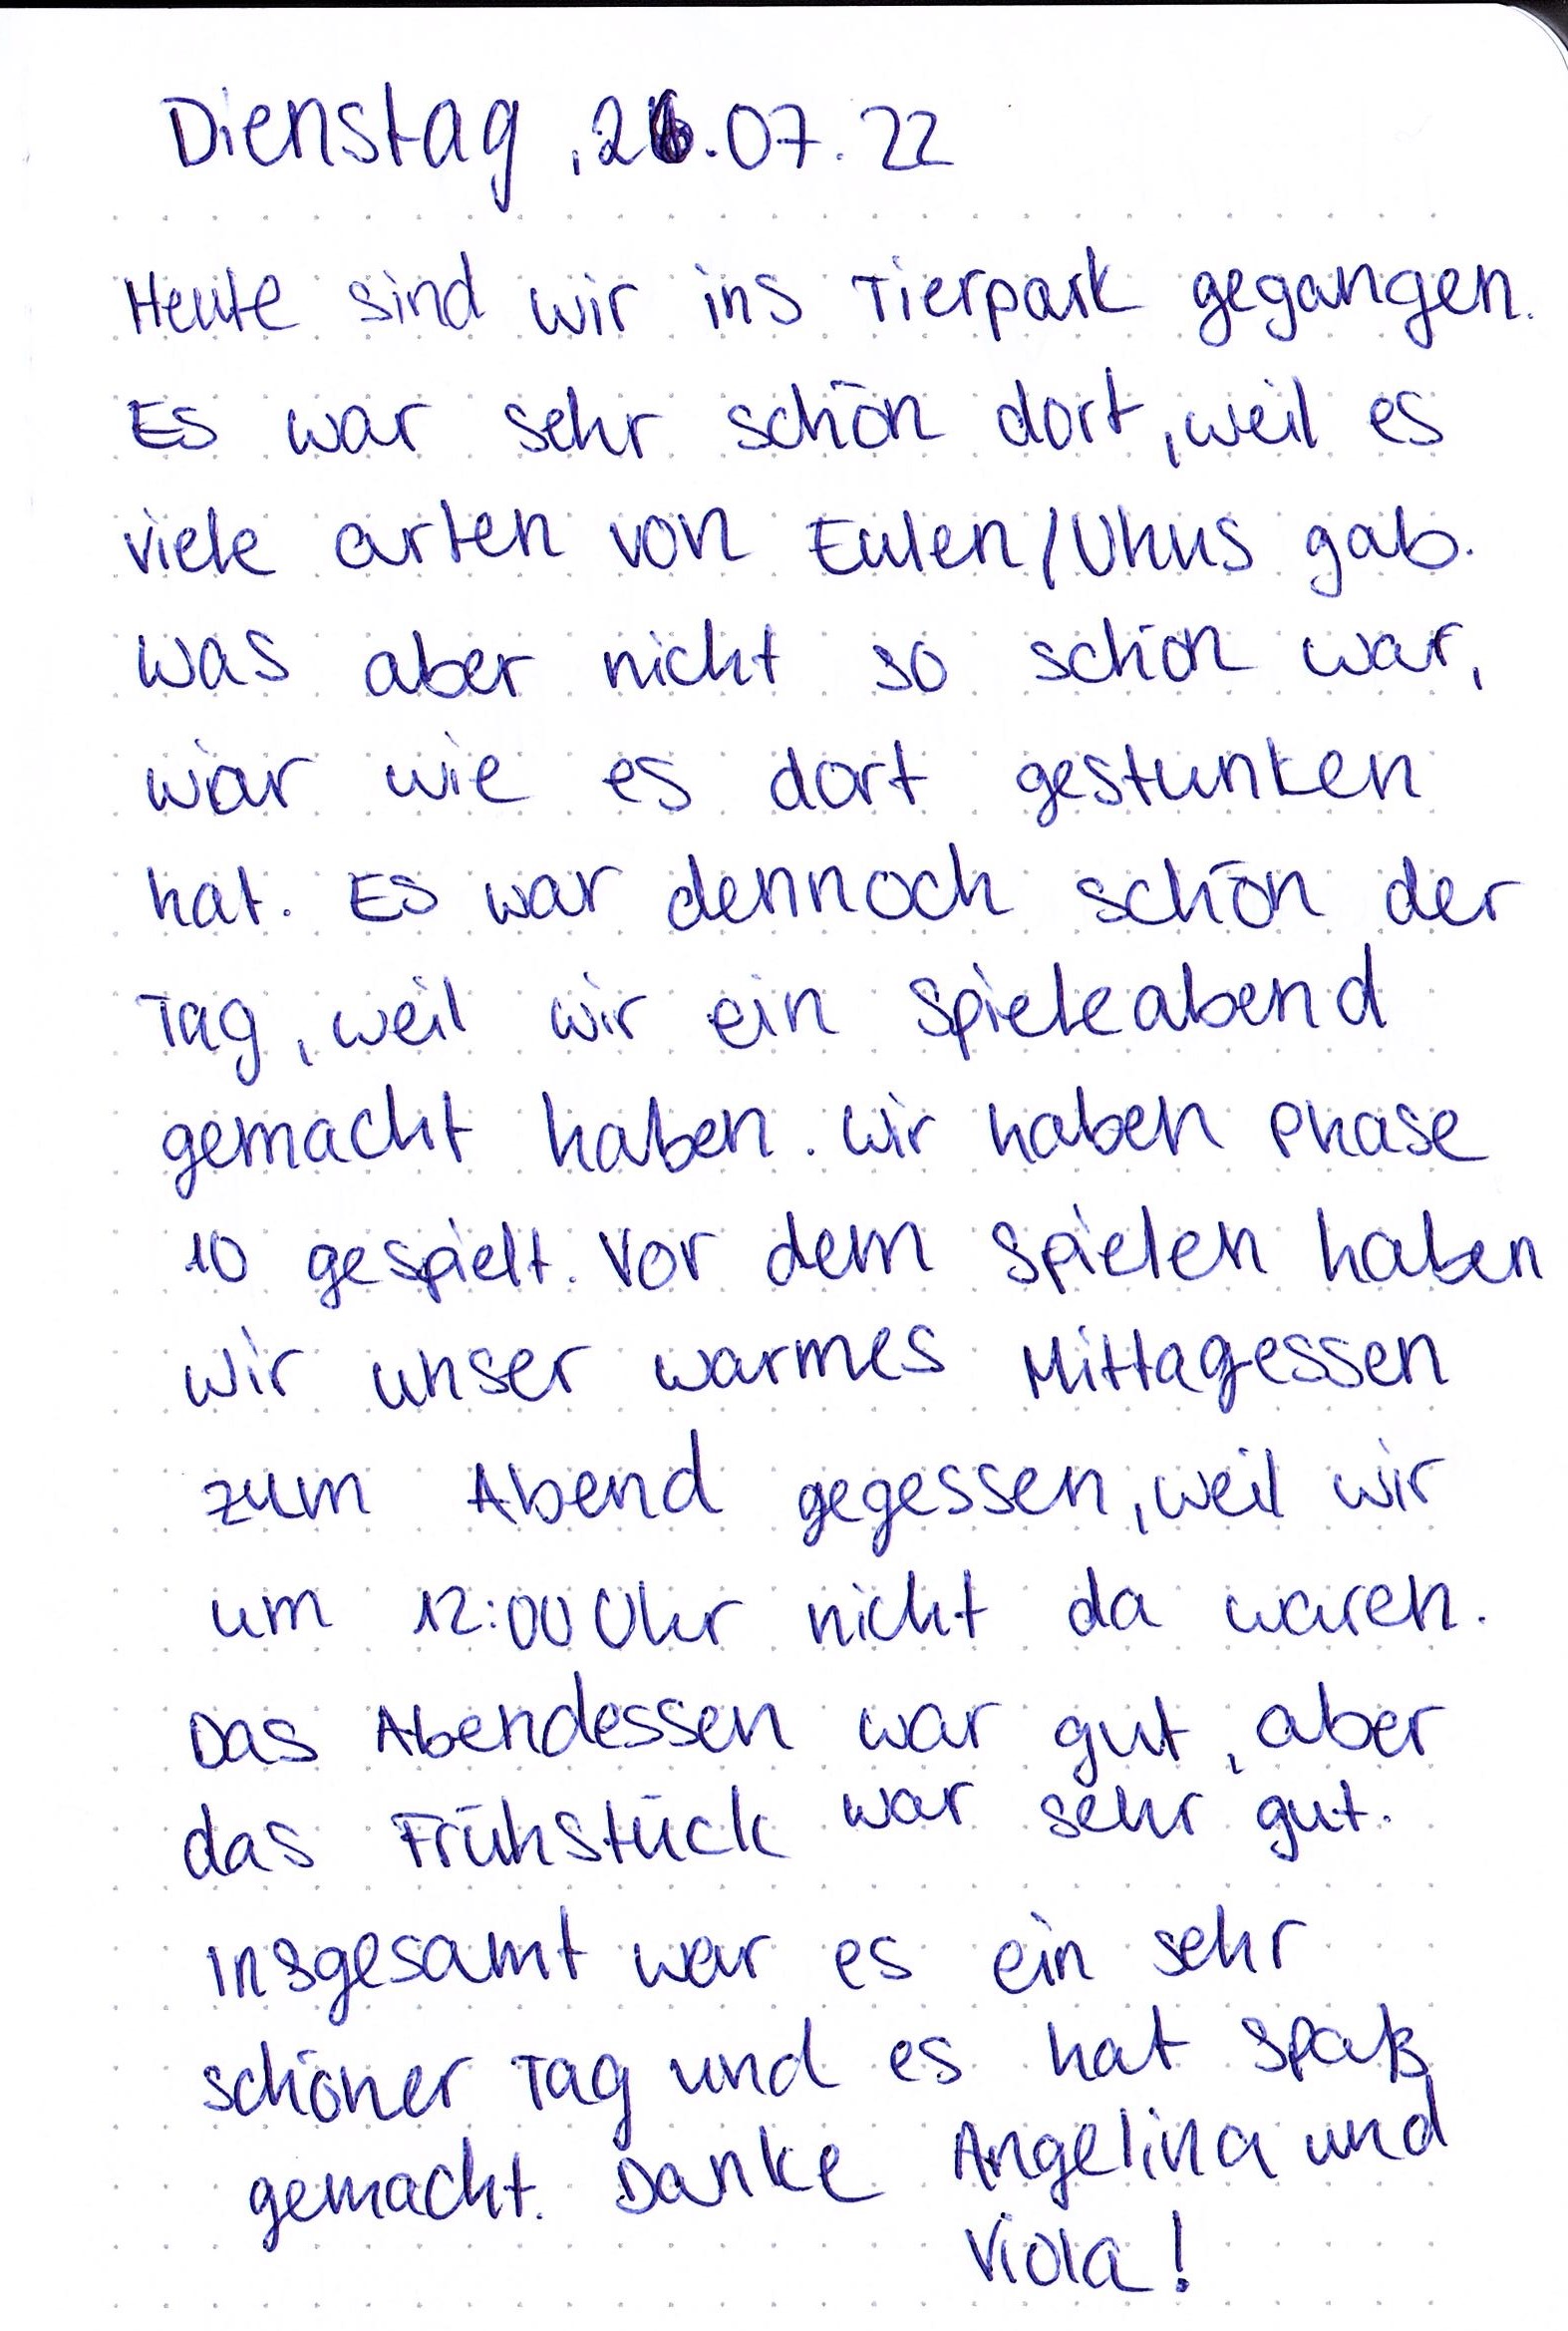 Dienstag, 26.07.22
Heute sind wir ins Tierpark gegangen.
Es war sehr schön dort, weil es
viele arten von Eulen/Uhus gab.
Was aber nicht so schön war,
war wie es dort gestunken
hat. Es war dennoch schön der
Tag, weil wir ein Spieleabend
gemacht haben. Wir haben Phase
10 gespielt. Vor dem Spielen haben
wir unser warmes Mittagessen
zum Abend gegessen, weil wir
um 12:00 Uhr nicht da waren.
Das Abendessen war gut, aber
das Frühstück war sehr gut.
Insgesamt war es ein sehr
schöner Tag und es hat Spaß
gemacht. Danke Angelina und
Viola!